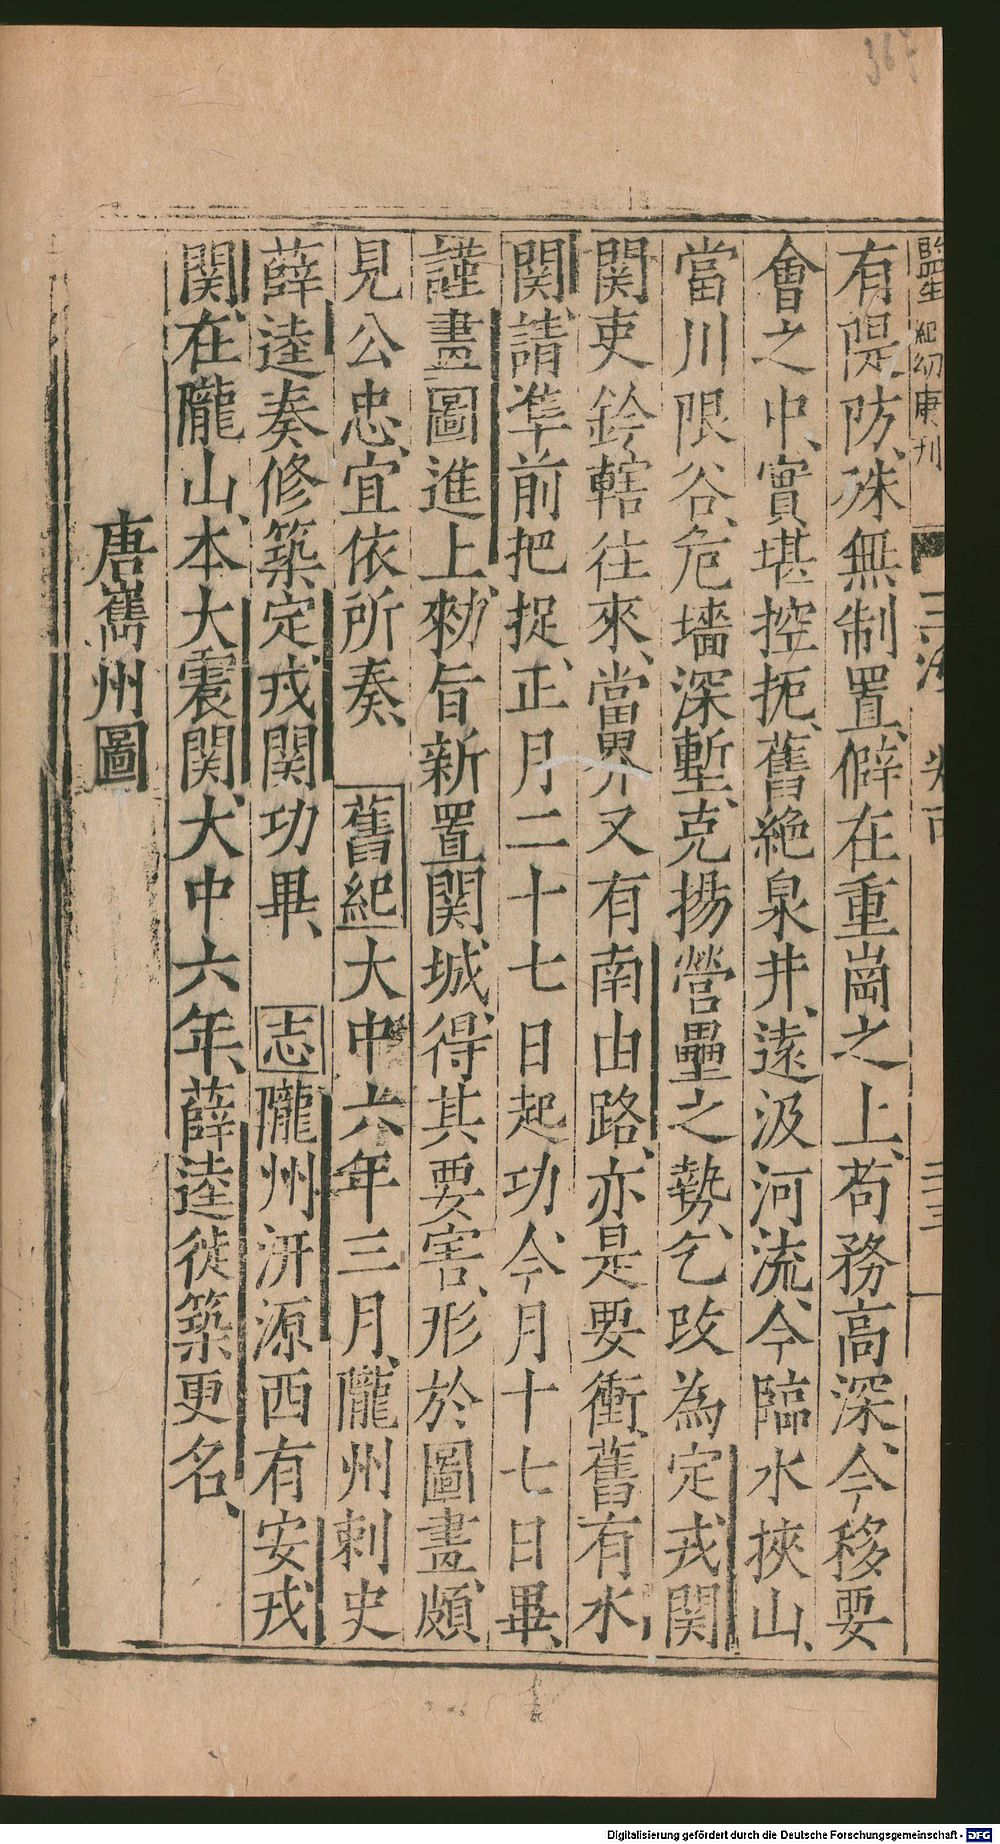 有隄防殊無制置僻在重崗之上、苟務高深、今移要
會之中、實堪控扼、舊絶泉井、遠汲河流、今臨水挾山、
當川限谷、危墻深塹、克揚營壘之勢、乞改為定戎関
関吏鈐轄往來、當界又有南由路、亦是要衝、舊有水
関、請準前把捉、正月二十七日起功、今月十七日畢、
謹畫圖進上、勑旨新置関城、得其要害、形於圖畫、頗
見公忠、宜依所奏、 舊紀大中六年三月、隴州刺史
薛逵奏修築定戎関功畢、 志隴州汧源西有安戎
関、在隴山、本大震関、大中六年、薛逵徙築更名、
唐巂州圖
Digitalisierung gefördert durch die Deutsche Forschungsgemeinschaft - DFG